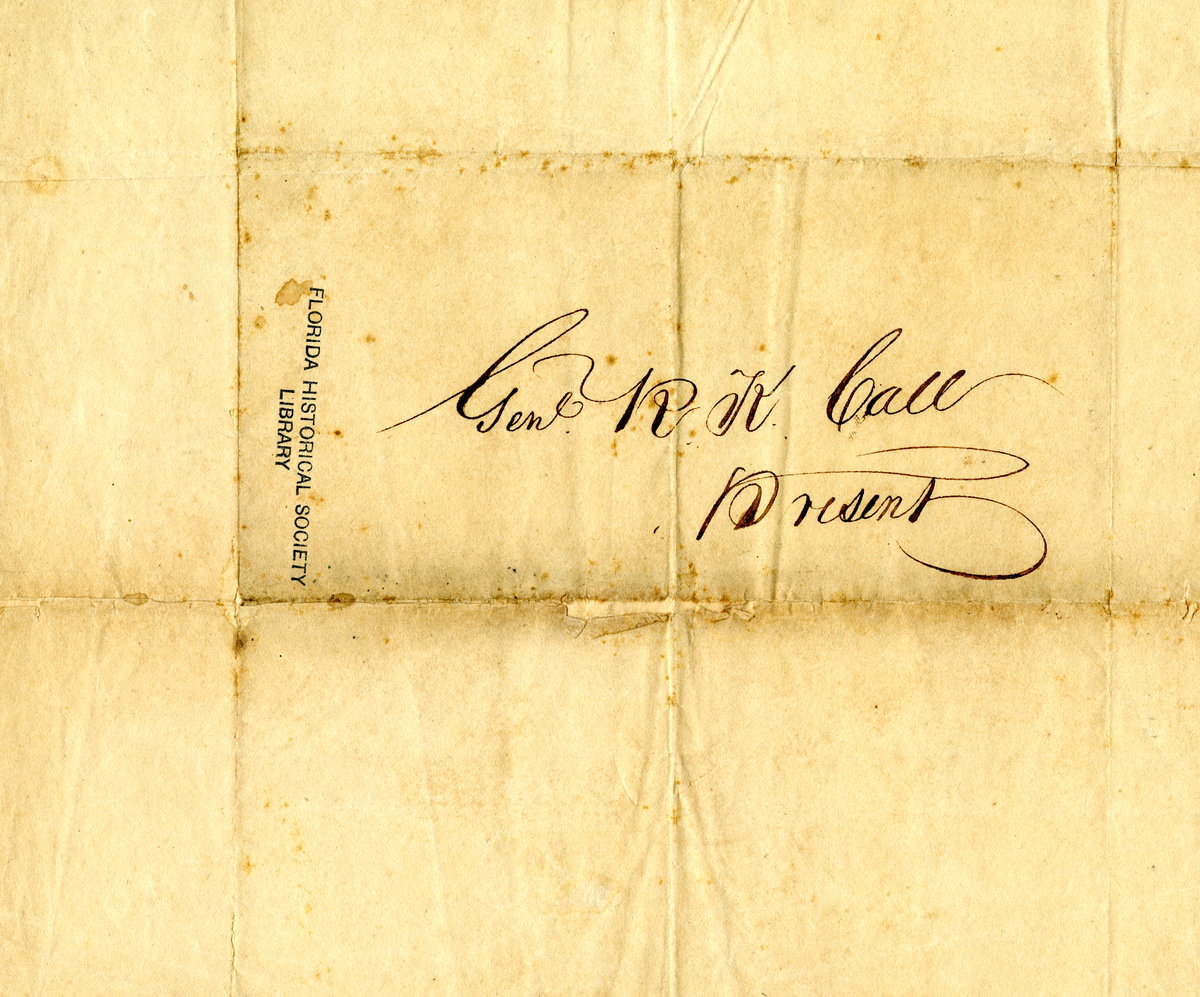 FLORIDA HISTORICAL SOCIETY
LIBRARY
Genl. R. K. Call
Present